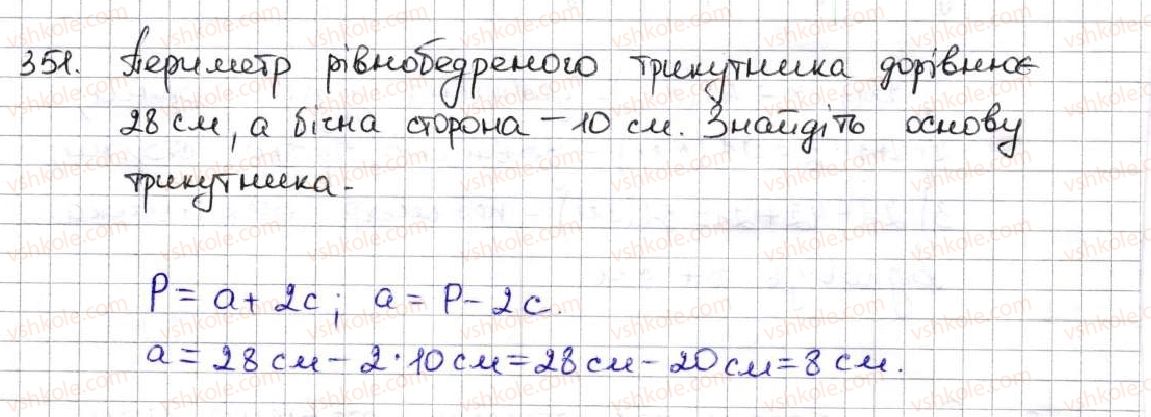 351. Периметр рівнобедреного трикутника дорівнює
28 см, а бічна сторона – 10 см. Знайдіть основу
трикутника.
P = a + 2c; a = P - 2c.
a = 28 см - 2 · 10 см = 28 см - 20 см = 8 см.